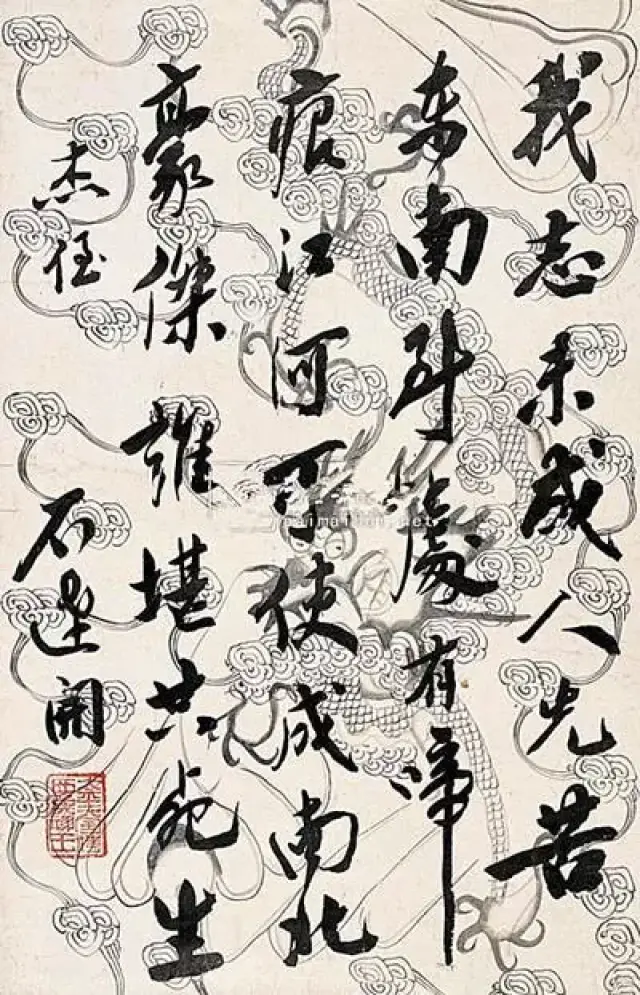 我志未成人先苦
东南到處有啼
痕江河可使成南北
豪傑誰堪共死生
杰侄
石達開